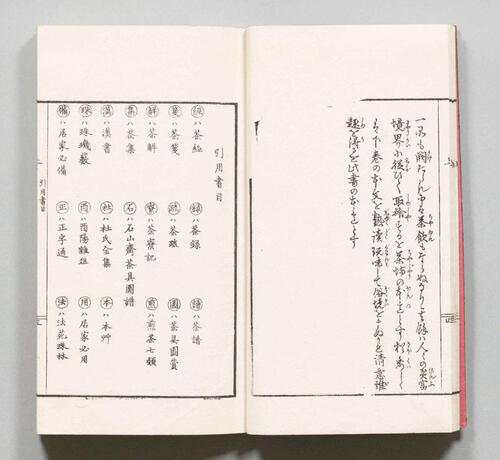 一品も闕たらん中々茶飲もならぬなり其餘ハ人々の貧富
境界に從ひて取捨するを茶坊の本意とす
下巻の本文を熟讀玩味して俗境をまぬかれ清意雅
趣を得るハ此書の本意
引用書目
經ハ茶經 録ハ茶録 譜ハ茶譜
箋ハ茶箋 疏ハ茶疏 圖ハ茶具圖賛
解ハ茶解 寮ハ茶寮記 煎ハ煎茶七類
集ハ茶集 石ハ石山齋茶具圖譜
漢ハ漢書 杜ハ杜氏全集 本ハ本艸
珠ハ珠璣薮 酉ハ酉陽雜俎 用ハ居家必用
備ハ居家必備 正ハ正字通 法ハ法苑珠林
引用書目